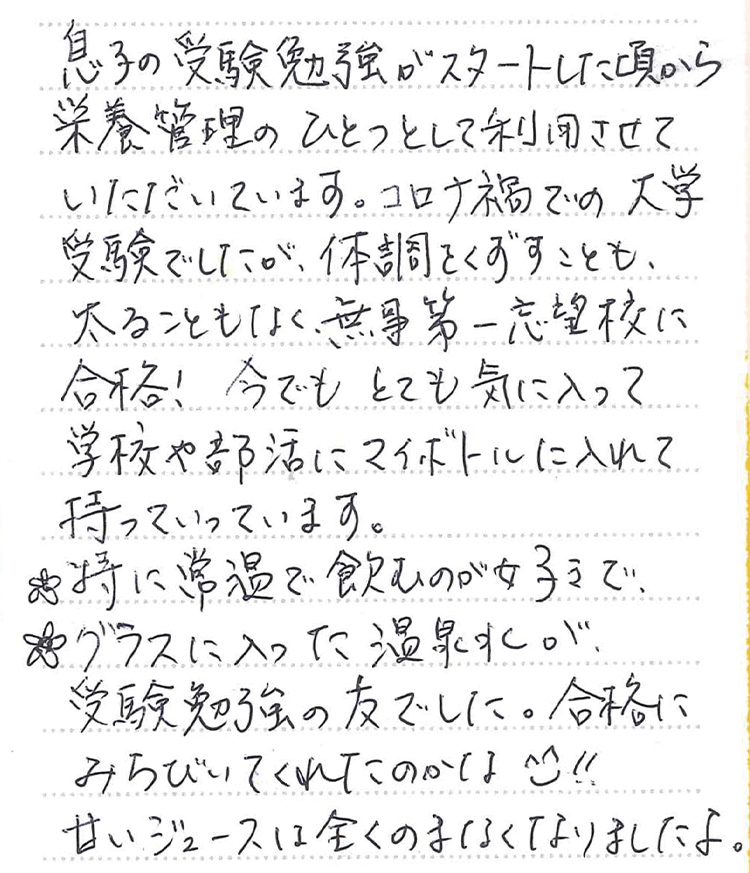 息子の受験勉強がスタートした頃から
栄養管理のひとつとして利用させて
いただいています。コロナ禍での大学
受験でしたが、体調をくずすことも、
太ることもなく、無事第一志望校に
合格! 今でもとても気に入って
学校や部活にマイボトルに入れて
持っていっています。
特に常温で飲むのが好きで、
グラスに入った温泉水が、
受験勉強の友でした。合格に
みちびいてくれたのかな!!
甘いジュースは全くのまなくなりましたよ。